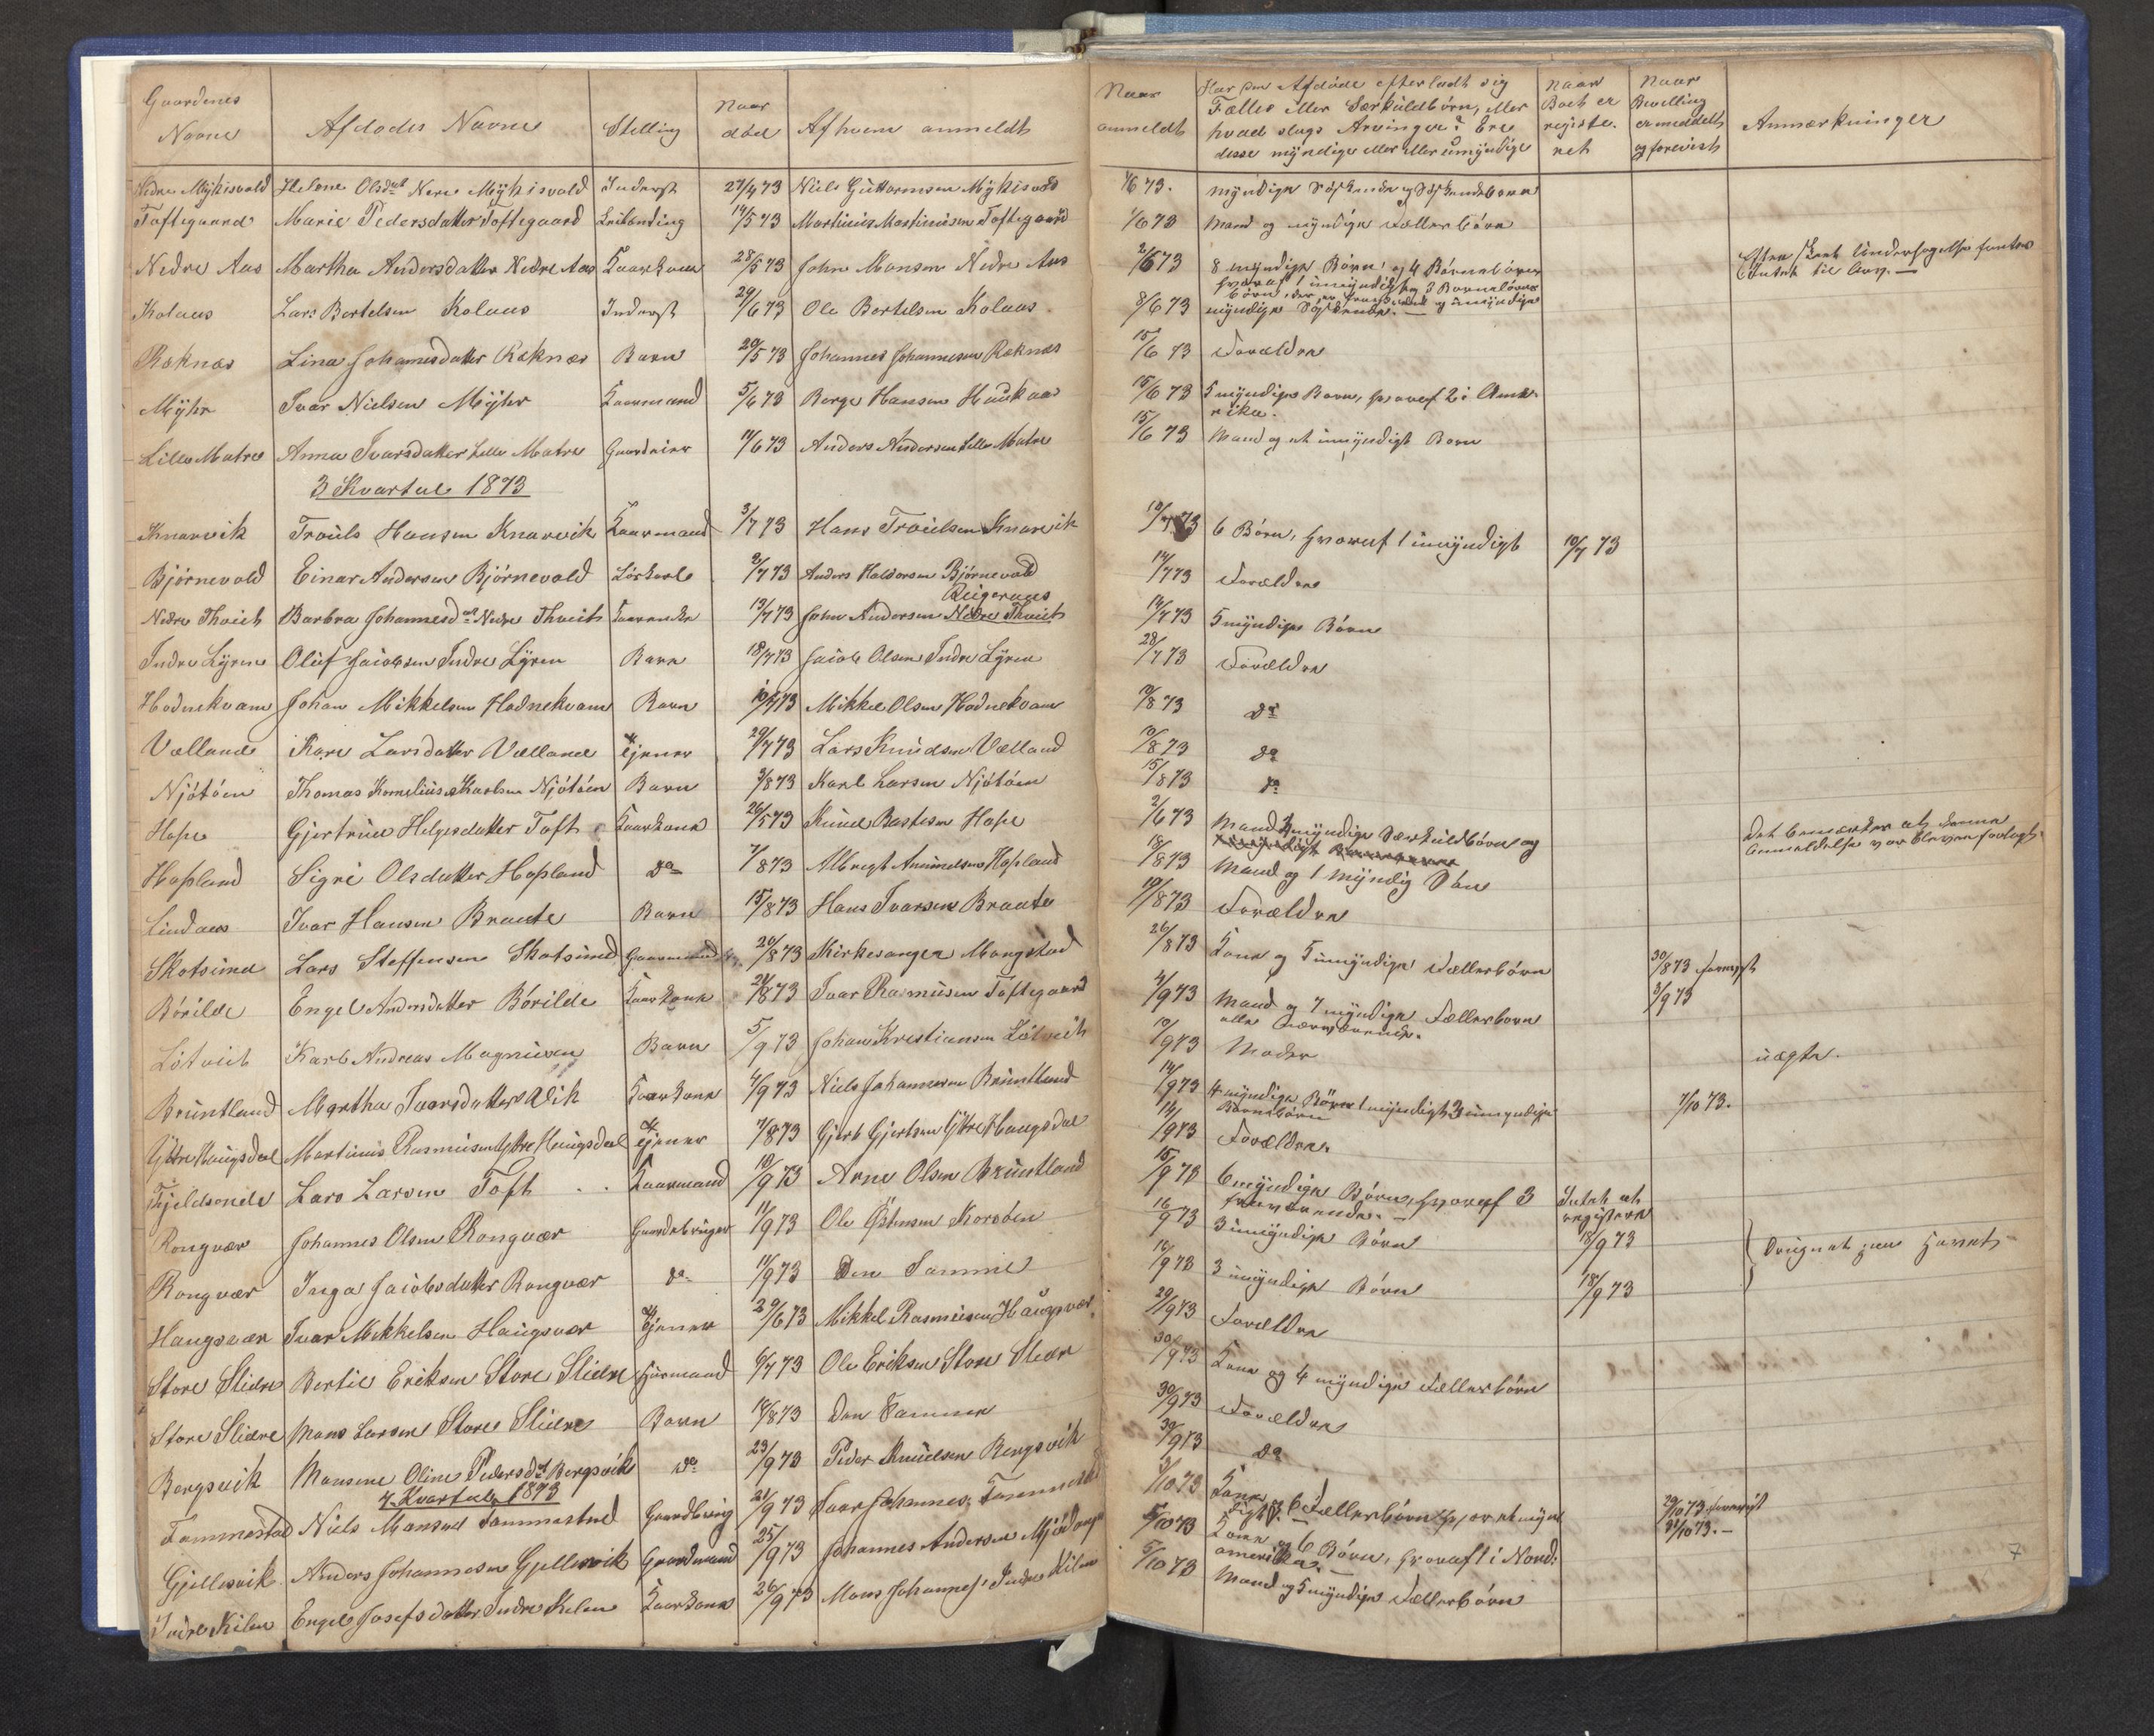 Gaardenes Navne | Afdødes Navne | Stilling | Naar død | Af hvem anmeldt | Naar anmeldt | Har den Afdøde efterladt sig Fælles eller Særkuldbørn, eller hvad slags Arvinger? Ere disse myndige eller eller umyndige | Naar Boet er registe- ret | Naar Bevilling er meddelt og forevist | Anmærkninger
Nedre Mÿhisvold | Helene Olsdatt Nere Mÿhisvold | Inderst | 27/4 73 | Niels Guttormsen Mÿkisvold | 1/6 73. | myndige Søskende og Søskendebørn
Toftegaard | Marie Pedersdatter Toftegaard | Leilending | 14/5 73 | Martinius Martiniusen Toftegaard | 1/6 73 | Mand og myndige Fællesbørn
Nedre Aas | Martha Andersdatter Nedre Aas | Kaarkone | 28/5 73 | John Monsen Nedre Aas | 2/6 73 | 8 myndige Børn og 4 Børnebørn hvoraf 1 umyndig og 3 Barnebørns børn, | Efter skeet Undersøgelse fantes Intet til Arv. —
Kolaas | Lars Bertelsen Kolaas | Inderst | 29/6 73 | Ole Bertelsen Kolaas | 8/6 73 | myndige Søskende. —
Røknæs | Lina Johannesdatter Røknæs | Barn | 20/5 73 | Johannes Johannesen Røknæs | 15/6 73 | Forældre
Mÿhr | Ivar Nielsen Mÿhr | Kaarmand | 5/6 73 | Berge Hansen Haukaas | 15/6 73 | 5 myndige Børn, hvoraf 2 i Ame- rika.
Lille Matre | Anna Ivarsdatter Lille Matre | Gaardeier | 11/6 73 | Anders Andersen Lille Matre | 15/6 73 | Mand og et umyndigt Barn
3 Kvartal 1873
Knarvik | Troüls Hansen Knarvik | Kaarmand | 3/7 73 | Hans Troülsen Knarvik | 10/7 73 | 6 Børn, hvoraf 1 umyndigt | 10/7 73
Bjørnevold | Einar Andersen Bjørnevold | Løskarl | 2/7 73 | Anders Haldorsen Bjørnevold | 14/7 73 | Forældre
Nedre Thveit | Barbra Johannesdatt Nedre Thveit | Kaarenke | 13/7 73 | John Andersen Nedre Thveit | 14/7 73 | 5 myndige Børn
Indre Lÿren | Oluf Jacobsen Indre Lÿren | Barn | 18/7 73 | Jacob Olsen Indre Lÿren | 28/7 73 | Forældre
Hodnekvam | Johan Mikkelsen Hodnekvam | Barn | 10/7 73 | Mikkel Olsen Hodnekvam | 10/8 73 | do
Vælland | Kari Larsdatter Vælland | Tjener | 29/7 73 | Lars Knudsen Vælland | 10/8 73 | do
Njøtøen | Thomas Kornelius Karlsen Njøtøen | Barn | 3/8 73 | Karl Larsen Njøtøen | 15/8 73 | do
Hope | Gjertrud Helgesdatter Toft | Kaarkone | 26/5 73 | Knud Bastesen Hope | 2/6 73 | Mand 4 myndige Særkuldbørn og | Det bemærkes at denne Anmeldelse var bleven forlagt.
Hopland | Sigri Olsdatter Hopland | do | 7/8 73 | Albregt Amundsen Hopland | 18/8 73 | Mand og 1 myndig Søn
Lindaas | Ivar Hansen Braate | Barn | 15/8 73 | Hans Ivarsen Braate | 19/8 73 | Forældre
Skotsund | Lars Steffensen Skotsund | Gaardmand | 20/8 73 | Kirkesanger Mongstad | 26/8 73 | Kone og 5 umyndige Fællesbørn | 30/8 73 forevist 3/9 73
Børilde | Engel Andersdatter Børilde | Kaarkone | 24/8 73 | Ivar Rasmusen Toftegaard | 4/9 73 | Mand og 7 myndige Fællesbørn alle nærværende.
Løtveit | Karl Andreas Magnusen | Barn | 5/9 73 | Johan Kristiansen Løtveit | 10/9 73 | Moder | uægte.
Bruntland | Martha Ivarsdatter Vik | Kaarkone | 4/9 73 | Niels Johannesen Bruntland | 14/9 73 | 4 myndige Børn 1 myndigt 3 umyndige Barnebørn | 7/10 73.
Ytre Haugsdal | Martinus Rasmusen Ytre Haugsdal | Tjener | 7/8 73 | Gjert Gjertsen Ytre Haugsdal | 14/9 73 | Forældre.
Fjeldsende | Lars Larsen Toft | Kaarmand | 10/9 73 | Arne Olsen Bruntland | 15/9 73 | 6 myndige Børn, hvoraf 3 fraværende. — | Intet at registere
Rongvær | Johannes Olsen Rongvær | Gaardebruger | 11/9 73 | Ole Østensen Korsøen | 16/9 73 | 3 umyndige Børn | 18/9 73 | Druknet paa Havet
Rongvær | Inga Jacobsdatter Rongvær | do | 11/9 73 | Den Samme | 16/9 73 | 3 umyndige Børn | 18/9 73
Haugsvær | Ivar Mikkelsen Haugsvær | Tjener | 29/6 73 | Mikkel Rasmusen Haugsvær | 29/9 73 | Forældre
Store Slidre | Bertil Eriksen Store Slidre | Huusmand | 6/7 73 | Ole Eriksen Store Slidre | 30/9 73 | Kone og 4 myndige Fællesbørn
Store Slidre | Mons Larsen Store Slidre | Barn | 18/8 73 | Den Samme | 30/9 73 | Forældre
Bergsvik | Monsene Oline Pedersdatt Bergsvik | do | 23/9 73 | Peder Knudsen Bergsvik | 30/9 73 | do
4. Kvartal 1873
Tammestad | Niels Monsen Tammestad | Gaardbrug | 21/9 73 | Ivar Johannes: Tammestad | 3/10 73 | Kone og 6 Fællesbørn | 29/10 73 forevist 31/10 73. —
Gjellesvik | Anders Johannesen Gjellesvik | Gaardmand | 25/9 73 | Johannes Andersen | 5/10 73 | Kone og 6 Børn, hvoraf 1 i Nord- amerika. —
Indre Kilen | Engel Josefsdatter Indre Kilen | Kaarkone | 26/9 73 | Mons Johannes: Indre Kilen | 5/10 73 | Mand og 5 myndige Fællesbørn
7